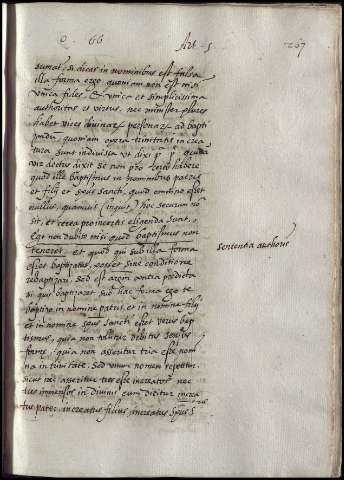 Q. 66 Art. 5 267
sumat, si dicas in nominibus est falsa
illa forma ergo, quoniam non est nisi
unica fides et unica et simplicissima
authoritas et virtus, nec minister plures
habet vices divinae personae ad bapti
zandum, quoniam opera trinitatis in crea
tura sunt indivisa ut dixi
vir doctus dixit se non pro certo habere
quod ille baptismus in nominibus patris
et filij et spus sancti, quod omnino esset
nullus, quamvis (inquit) hoc securum no
sit, et certa pro incertis eligenda sunt.
Ego non dubito nisi quod baptismus non
teneret, et quod qui sub illa forma
esset baptizatus, posset sine conditione
rebaptizari, sed est contra predicta
si quis baptizaret sub hac forma ego te
baptizo in nomine patris et in nomine filij
et in nomine spus sancti esset verus bap
tismus, quia non tollitur debitus sensus
formae, quia non asseritur tria esse nom
na in trinitate, sed unum nomen repetitur.
sicut nec asseritur tres esse increatos nec
tres immensos in divinis cum dicitur increa
tus pater increatus filius, increatus spus S
sententia authoris